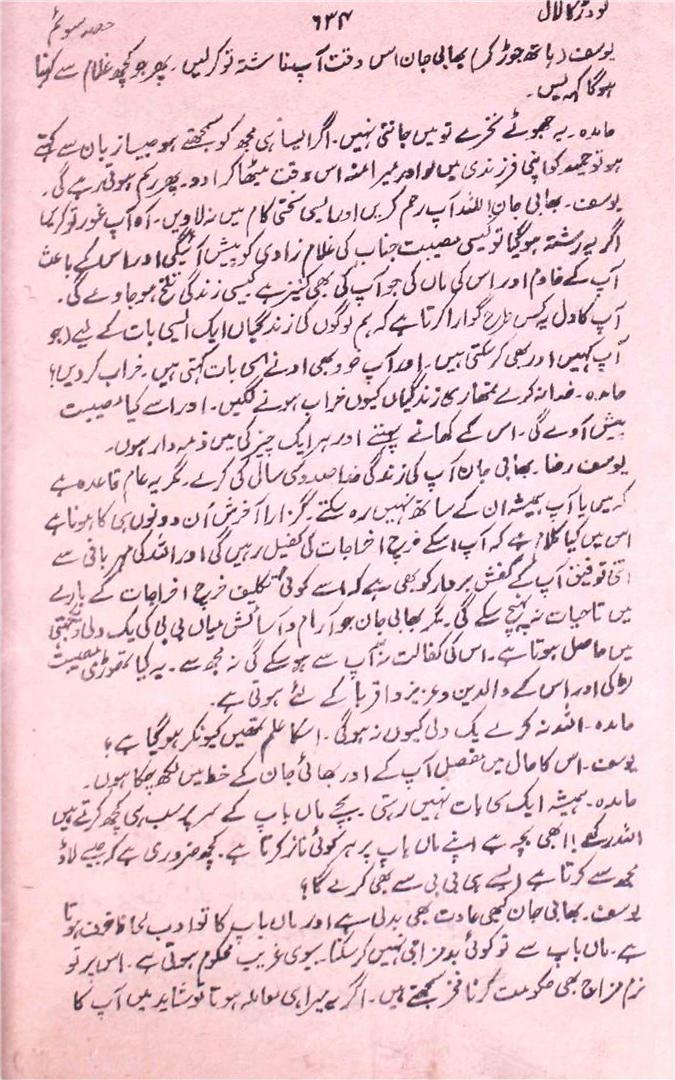 گودڑ کا لال ۶۳۴ حصہ سوئم
یوسف (ہاتھ جوڑ کر) بھابی جان اس وقت آپ ناشتہ تو کر لیں۔ پھر جو کچھ غلام سے کہنا
ہو گا کہہ لیں۔
ماجدہ۔ یہ جھوٹے نخرے تو میں جانتی نہیں۔ اگر ایسا ہی مجھ کو سمجھتے ہو جیسا زبان سے کہتے
ہو تو حمید کو اپنی فرزندی میں لو اور میرا منہ اس وقت میٹھا کرا دو۔ پھر رسم ہوتی رہے گی۔
یوسف۔ بھابی جان! للہ آپ رحم کریں اور ایسی سختی کام میں نہ لاویں۔ آہ آپ غور تو کریں
اگر یہ رشتہ ہو گیا تو کیسی مصیبت جناب کی غلام زادی کو پیش آئیگی اور اس کے باعث
آپ کے خادم اور اس کی ماں کی جو آپ کی بھی کنیز ہے کیسی زندگی تلخ ہو جاوے گی۔
آپ کا دل یہ کس طرح گوارا کرتا ہے کہ ہم لوگوں کی زندگیاں ایک ایسی بات کے لیے (جو
آپ کہیں اور بھی کر سکتی ہیں۔ اور آپ خود بھی ادنےٰ سی بات کہتی ہیں۔ خراب کر دیں؟
ماجدہ۔ خدا نہ کرے تمھاری زندگیاں کیوں خراب ہونے لگیں۔ اور اسے کیا مصیبت
پیش آوے گی۔ اس کے کھانے پہننے اور ہر ایک چیز کی میں ذمہ دار ہوں۔
یوسف رضا۔ بھابی جان آپ کی زندگی خدا صد و سی سال کی کرے۔ مگر یہ عام قاعدہ ہے
کہ میں یا آپ ہمیشہ ان کے ساتھ نہیں رہ سکتے۔ گزارا آخرش اُن دونوں ہی کا ہونا ہے
اس میں کیا کلام ہے کہ آپ اسکے خرچ اخراجات کی کفیل رہیں گی اور اللہ کی مہربانی سے
اتنی توفیق آپ کے کفش بردار کو بھی ہے کہ اسے کوئی تکلیف خرچ اخراجات کے بارے
میں تاحیات نہ پہنچ سکے گی۔ مگر بھابی جان جو آرام و آسائش میاں بی بی کی یک دلی و یکجہتی
میں حاصل ہوتا ہے۔ اس کی کفالت نہ آپ سے ہو سکے گی نہ مجھ سے۔ یہ کیا تھوڑی مصیبت
لڑکی اور اس کے والدین و عزیز و اقربا کے لئے ہوتی ہے۔
ماجدہ۔ اللہ نہ کرے یک دلی کیوں نہ ہو گی۔ اسکا علم تمھیں کیونکر ہو گیا ہے؟
یوسف۔ اس کا حال میں مفصل آپ کے اور بھائی جان کے خط میں لکھ چکا ہوں۔
ماجدہ۔ ہمیشہ ایک سی بات نہیں رہتی۔ بچے ماں باپ کے سر پر سب ہی کچھ کرتے ہیں
اللہ رکھے! ابھی بچہ ہے اپنے ماں باپ پر ہر کوئی ناز کرتا ہے۔ کچھ ضروری ہے کہ جیسے لاڈ
مجھ سے کرتا ہے ایسے ہی بی بی سے بھی کرے گا؟
یوسف۔ بھابی جان کبھی عادت بھی بدلی ہے اور ماں باپ کا تو ادب لحاظ خوف ہوتا
ہے۔ ماں باپ سے تو کوئی بد مزاجی نہیں کر سکتا۔ بیوی غریب محکوم ہوتی ہے۔ اس پر تو
نرم مزاج بھی حکومت کرنا فخر سمجھتے ہیں۔ اگر یہ میرا ہی معاملہ ہوتا تو شاید میں آپ کا